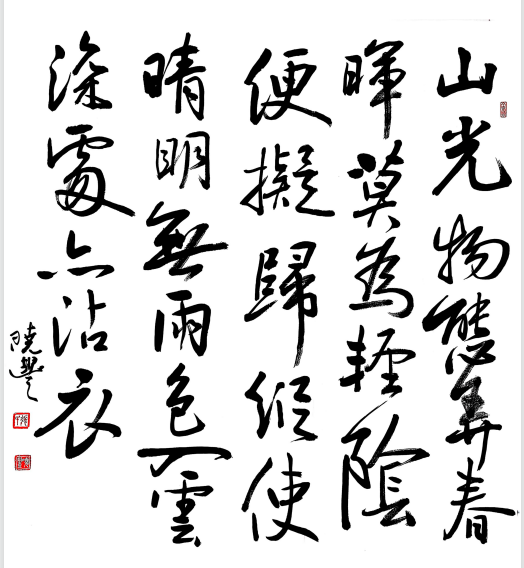 山光物態弄春
暉莫為輕陰
便擬歸縱使
晴明無雨色入雲
深處亦沾衣